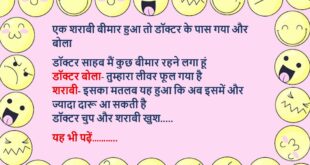 एक शराबी बीमार हुआ तो डॉक्टर के पास गया और
बोला
डॉक्टर साहब मैं कुछ बीमार रहने लगा हूं
डॉक्टर बोला- तुम्हारा लीवर फूल गया है
शराबी- इसका मतलब यह हुआ कि अब इसमें और
ज्यादा दारू आ सकती है
डॉक्टर चुप और शराबी खुश.....
यह भी पढ़ें...........